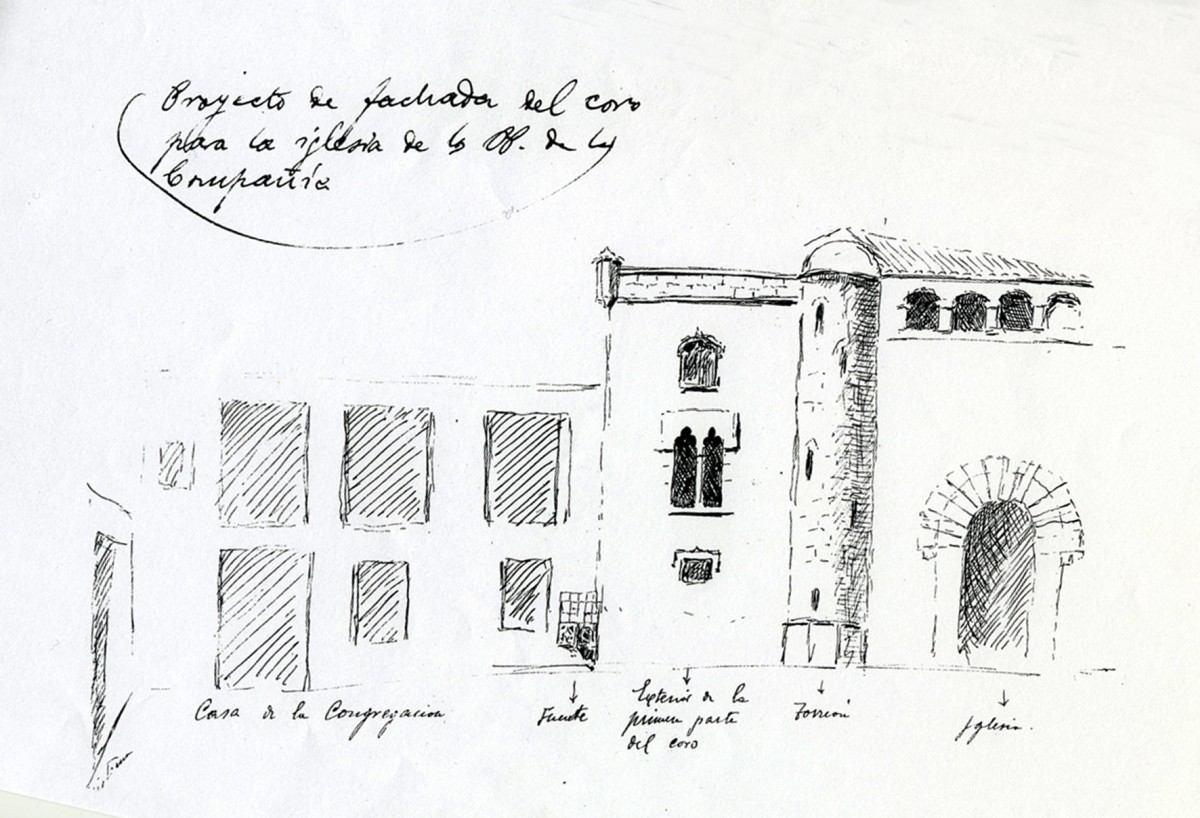 Proyecto de fachada del coro
para la iglesia de los PP. de la
Compañía
Casa de la Congregacion
Fuente
Exterior de la
primera parte
del coro
Torreón
Iglesia.